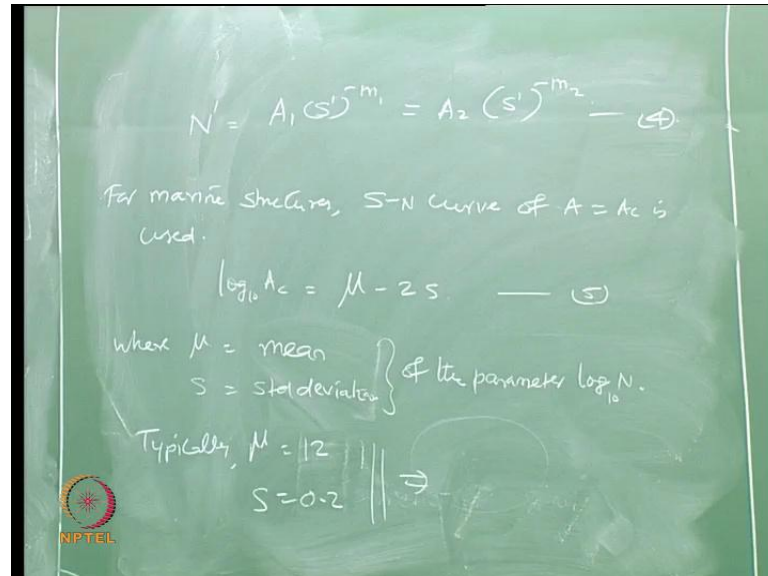 N' = A₁ (S')^-m₁ = A₂ (S')^-m₂ — (4)
For marine structures, S-N curve of A = Ac is
used.
log₁₀ Ac = μ - 2s. — (5)
where μ = mean
s = std deviation } of the parameter log₁₀ N.
Typically, μ = 12
s = 0.2 || ⇒
NPTEL